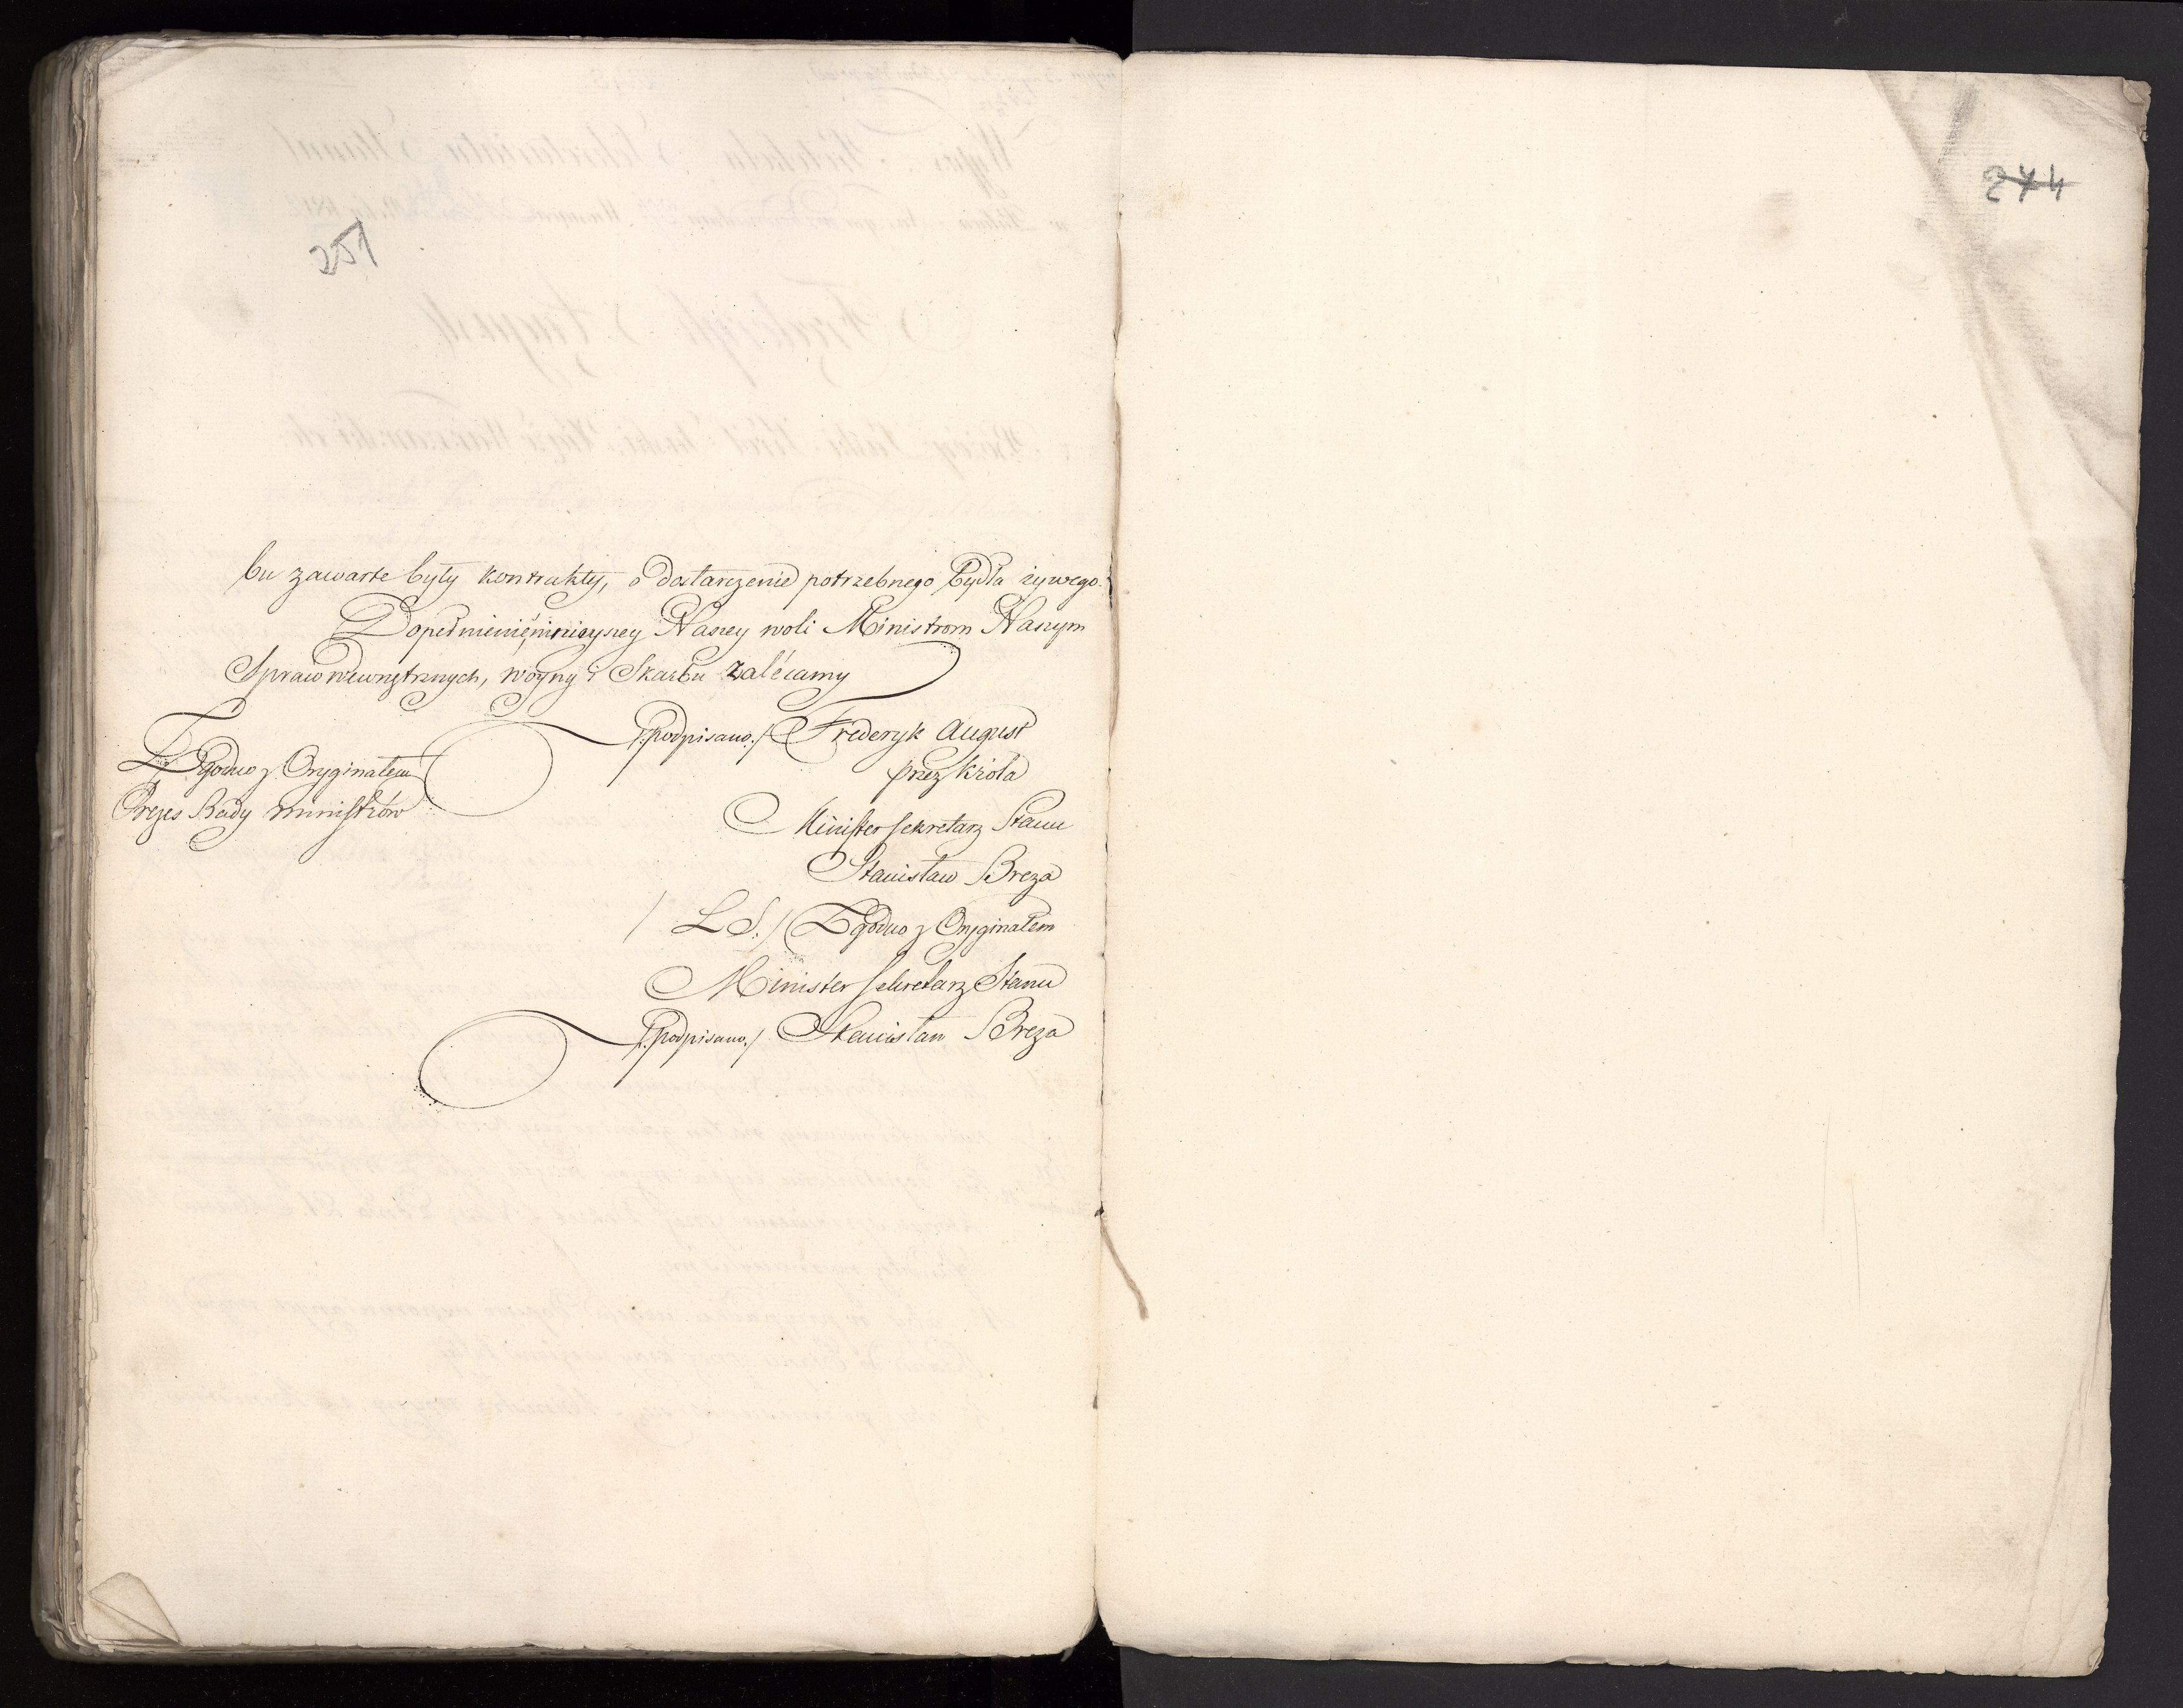 251
bu zawarte były kontrakty, o dostarczenie potrzebnego bydła żywego.
Dopełnienie, ninieyszey Naszey woli Ministrom Naszym
Spraw wewnętrznych, woyny i Skarbu zalecamy
/:podpisano:/ Frederyk August
przez Króla
Minister Sekretarz Stanu
Stanisław Breza
/ L S. / Zgodno z Oryginałem
Minister Sekretarz Stanu
/:podpisano:/ Stanisław Breza
Zgodno z Oryginałem
Prezes Rady Ministrów
274